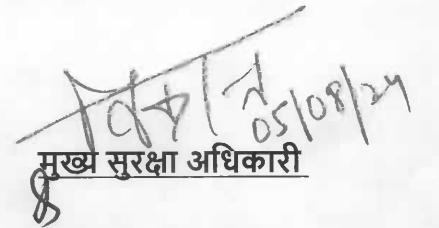 05/08/24
मुख्य सुरक्षा अधिकारी